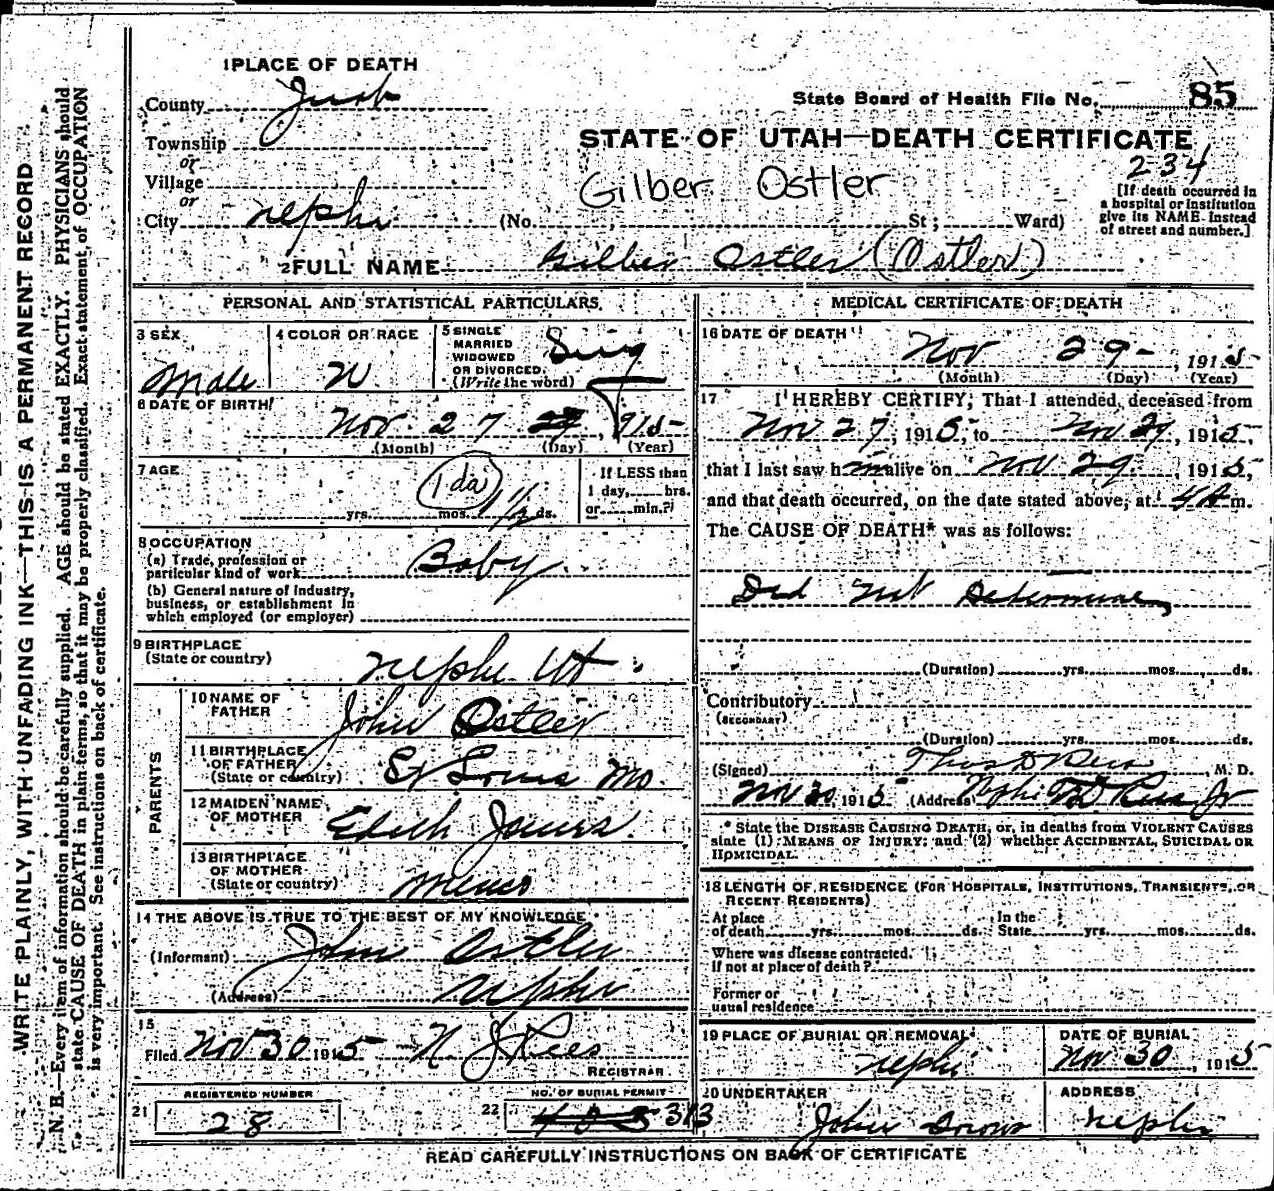 WRITE PLAINLY, WITH UNFADING INK—THIS IS A PERMANENT RECORD
N. B.—Every item of information should be carefully supplied. AGE should be stated EXACTLY. PHYSICIANS should
state CAUSE OF DEATH in plain terms, so that it may be properly classified. Exact statement of OCCUPATION
is very important. See instructions on back of certificate.
1 PLACE OF DEATH
County Juab
Township
or
Village
or
City Nephi (No. St; Ward)
State Board of Health File No. 85
STATE OF UTAH—DEATH CERTIFICATE
234
Gilber Ostler
[If death occurred in
a hospital or institution
give its NAME instead
of street and number.]
2 FULL NAME Gilber Ostler (Ostler)
PERSONAL AND STATISTICAL PARTICULARS
3 SEX
Male
4 COLOR OR RACE
W
5 SINGLE
MARRIED
WIDOWED
OR DIVORCED
(Write the word)
Sing
6 DATE OF BIRTH
Nov. 27, 1915
(Month) (Day) (Year)
7 AGE
1 da
yrs. mos. 1 1/2 ds.
If LESS than
1 day, hrs.
or min.?
8 OCCUPATION
(a) Trade, profession or
particular kind of work Baby
(b) General nature of industry,
business, or establishment in
which employed (or employer)
9 BIRTHPLACE
(State or country) Nephi Ut
PARENTS
10 NAME OF
FATHER John Ostler
11 BIRTHPLACE
OF FATHER
(State or country) St Louis Mo.
12 MAIDEN NAME
OF MOTHER Edith
13 BIRTHPLACE
OF MOTHER
(State or country)
14 THE ABOVE IS TRUE TO THE BEST OF MY KNOWLEDGE
(Informant) John Ostler
(Address) Nephi
15
Filed Nov 30 1915 N. J Rees
REGISTRAR
21 REGISTERED NUMBER
28
22 NO. OF BURIAL PERMIT
313
MEDICAL CERTIFICATE OF DEATH
16 DATE OF DEATH
Nov 29-, 1915
(Month) (Day) (Year)
17 I HEREBY CERTIFY, That I attended deceased from
Nov 27, 1915, to Nov 29, 1915,
that I last saw him alive on Nov 29. 1915,
and that death occurred, on the date stated above, at 4 A m.
The CAUSE OF DEATH* was as follows:
Did not Determine
(Duration) yrs. mos. ds.
Contributory
(SECONDARY)
(Duration) yrs. mos. ds.
(Signed) Thos D Rees, M. D.
Nov 30 1915 (Address) Nephi TD Rees Jr
* State the DISEASE CAUSING DEATH, or, in deaths from VIOLENT CAUSES
state (1) MEANS OF INJURY; and (2) whether ACCIDENTAL, SUICIDAL OR
HOMICIDAL.
18 LENGTH OF RESIDENCE (FOR HOSPITALS, INSTITUTIONS, TRANSIENTS, OR
RECENT RESIDENTS)
At place In the
of death yrs. mos. ds. State yrs. mos. ds.
Where was disease contracted.
If not at place of death?
Former or
usual residence
19 PLACE OF BURIAL OR REMOVAL
Nephi
DATE OF BURIAL
Nov 30, 1915
20 UNDERTAKER
John
ADDRESS
Nephi
READ CAREFULLY INSTRUCTIONS ON BACK OF CERTIFICATE